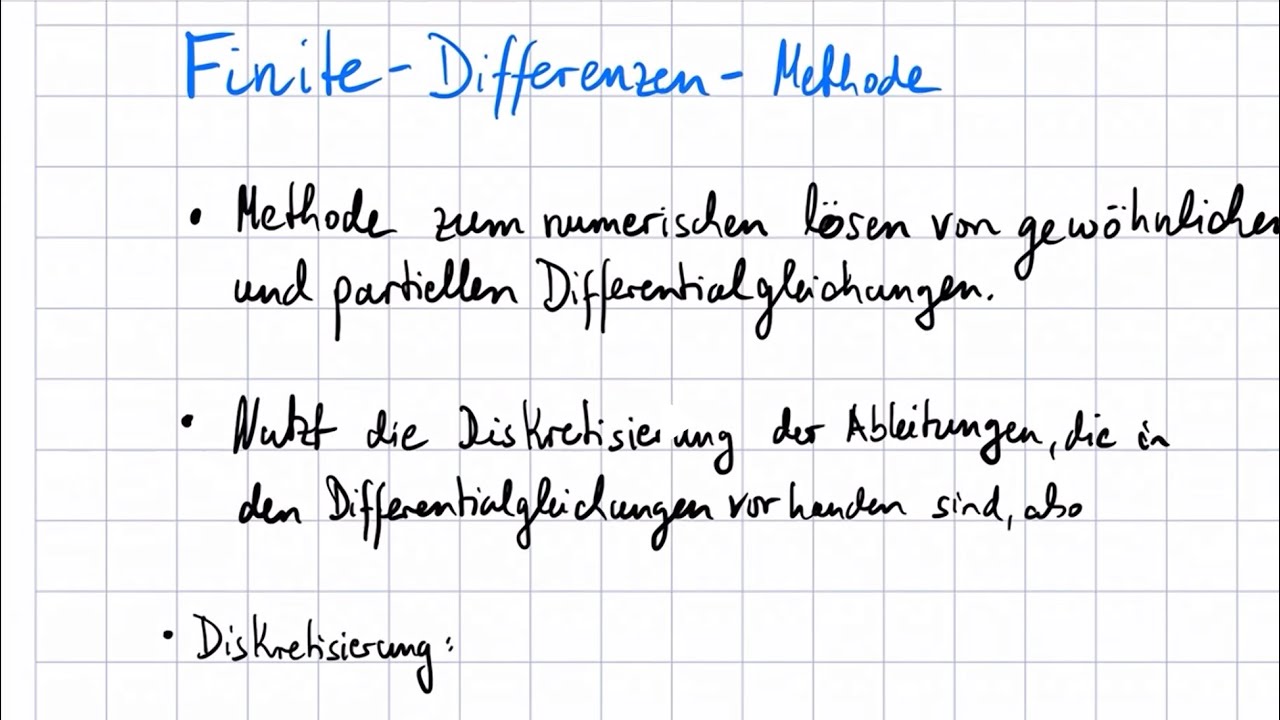 Finite-Differenzen-Methode
• Methode zum numerischen lösen von gewöhnlichen
und partiellen Differentialgleichungen.
• Nutzt die Diskretisierung der Ableitungen, die in
den Differentialgleichungen vorhanden sind, also
• Diskretisierung: